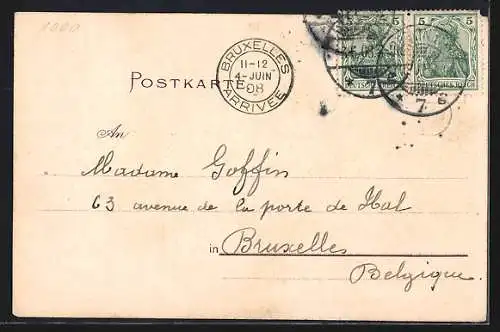 1000
BRUXELLES
11-12
4-JUIN
08
ARRIVÉE
5 5
DEUTSCHES REICH
* 7 * 7 g
POSTKARTE
An
Madame Goffin
63 avenue de la porte de Hal
in Bruxelles
Belgique.